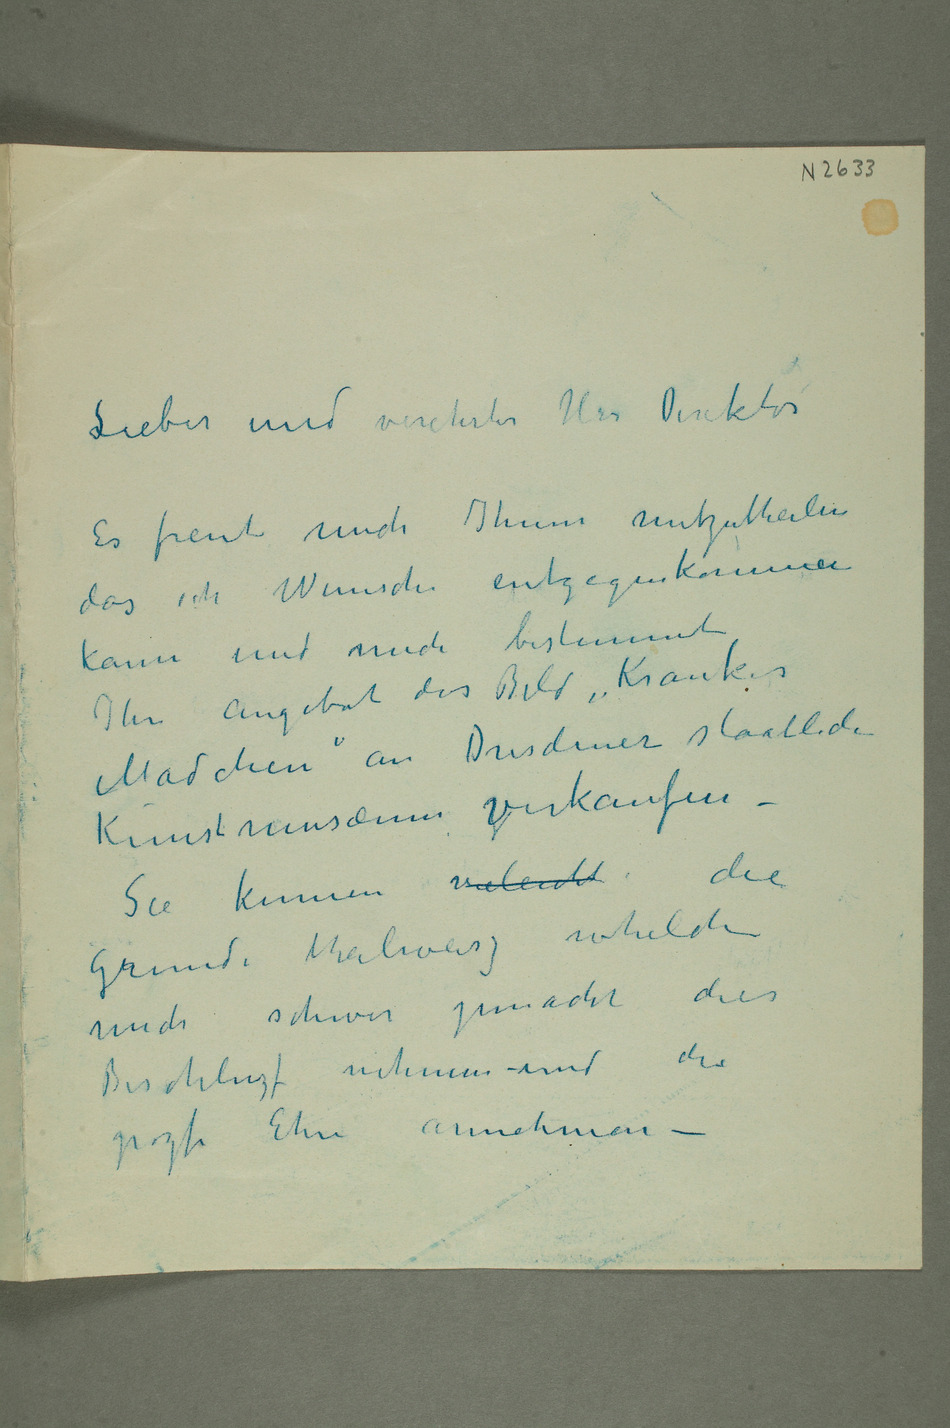 N 2633
Lieber und verehrter Herr Direktor
Es freut mich Ihnen mitzutheilen
das ich Wünsche entgegenkommen
kann und mich bestimmt
Ihr Angebot das Bild „Krankes
Mädchen" an Dresdener staatliche
Kunstmusæum verkaufen –
Sie kennen vieleicht die
Gründe theilweis
mich schwer gemacht dies
nehmen – und die
Ehre annehmen –